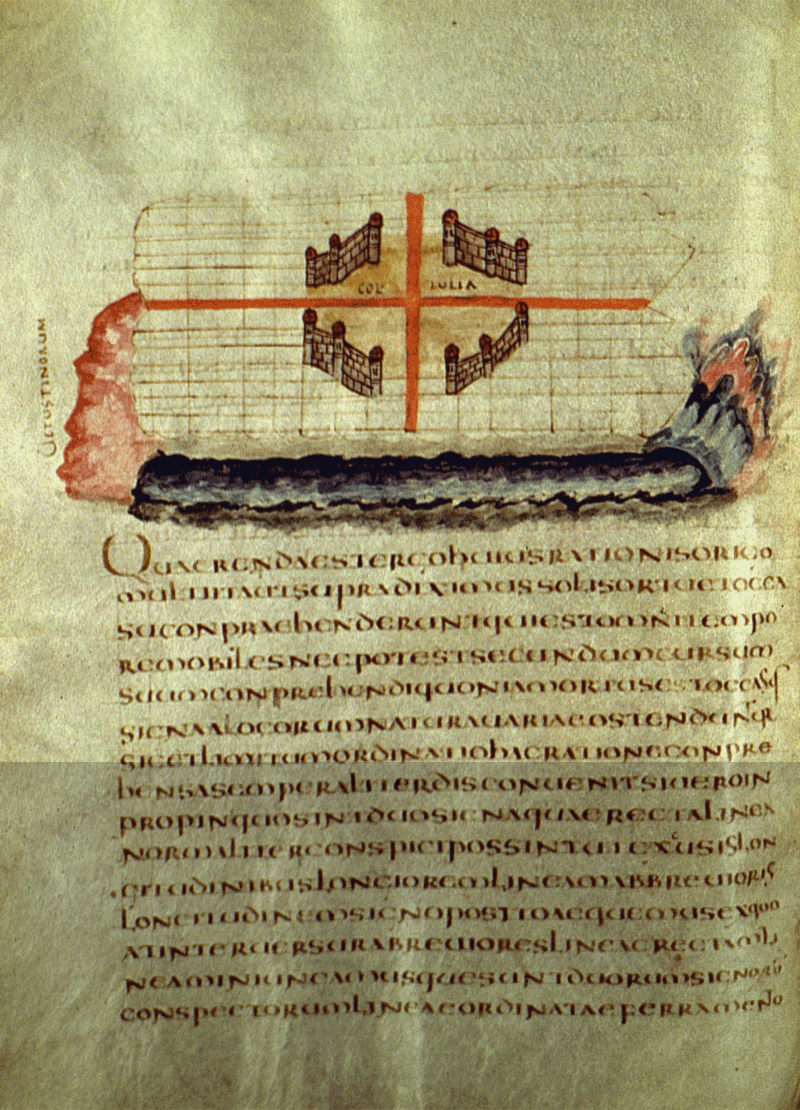 COL IULIA
UETUSTINORUM
QUAERENDAESTERGOHUIUSRATIONISORIGO
SUPRADIXIMUSSOLISORTUETOCCA
SUCONPRAEHENDERUNTQUIESTOMNITEMPO
REMOBILESNECPOTESTSECUNDUMCURSUM
SUUMCONPREHENDIQUONIAMORTUSETOCCASUS
SIGNAALOCORUMNATURAUARIAEOSTENDUNTUR
SICETLIMITUMORDINATIOHACRATIONECONPRE
HENSASEMPERALTIERDISCONUENITSIUEROIN
PROPINQUOSINTDUOSIGNAQUAERECTALINEA
NORMALITERCONSPICIPOSSINT
GITUDINIBUSLONGIOREMLINEAMABBREUIORIS
LONGITUDINEMSIGNOPOSITOAEQUEMUSEXQUO
ATINTERUERSURABREUIORESLINEAERECTAMLI
NEAMINIUNGAMUSQUESUNTDUORUMSIGNORU
CONSPECTORUMLINEAEORDINATAEFERRAMENTO